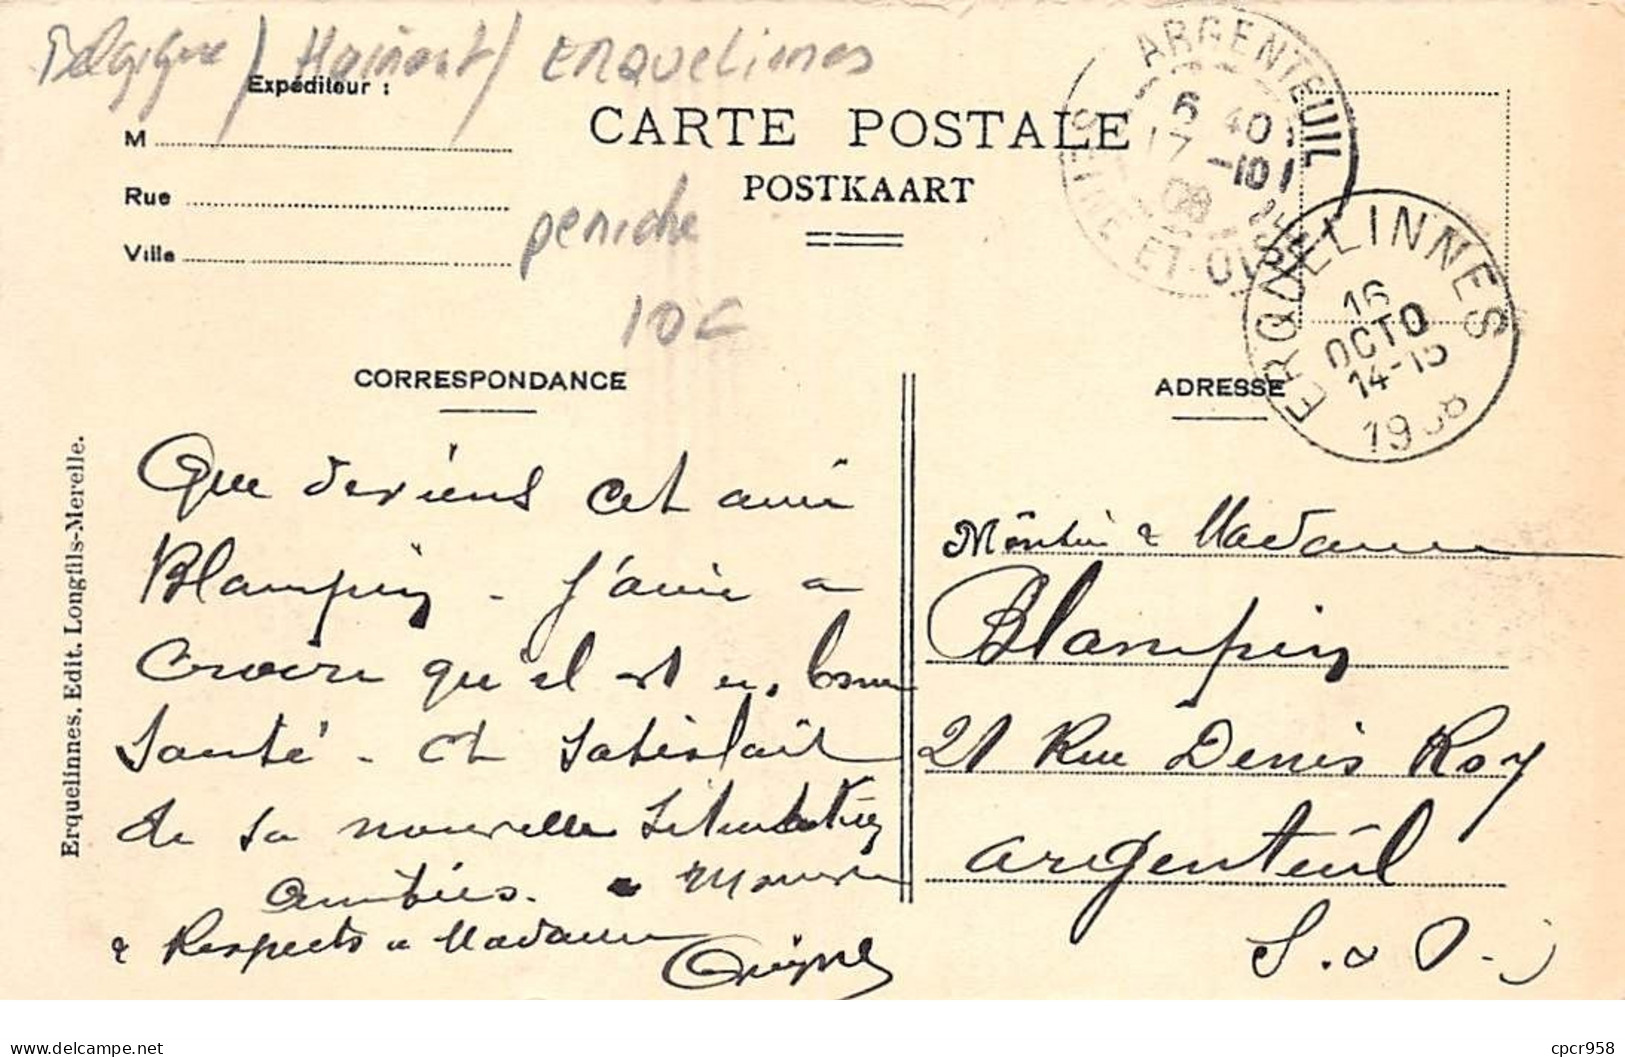 Belgique / Hainaut / Erquelinnes
Expéditeur :
M
Rue
Ville
CARTE POSTALE
POSTKAART
peniche
10C
ARGENTEUIL
6 40
17 -10
08
SEINE ET OISE
ERQUELINNES
16
OCTO
14-15
1908
CORRESPONDANCE
ADRESSE
Erquelinnes. Edit. Longfils-Merelle.
Que deviens cet ami
Blampin - J'aime a
Croire qu'il est en bonne
Santé - et satisfait
de sa nouvelle situation
Amitiés. a Monsieur
& Respects a Madame
Monsieur & Madame
Blampin
21 Rue Denis Roy
Argenteuil
S. & O.
delcampe.net
cpcr958